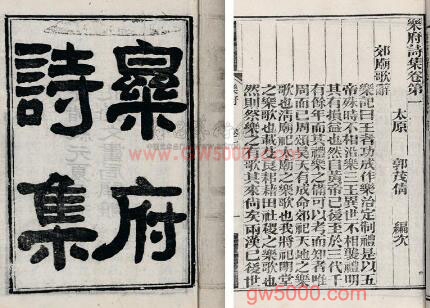 樂府
詩集
樂府詩集卷第一
太原 郭茂倩 編次
郊廟歌辭
樂記曰王者功成作樂治定制禮是以五
帝殊時不相沿樂三王異世不相襲禮明
其有損益也然自黃帝已後至於三代千
有餘年而其禮樂之備可以考而知者唯
周而已周頌昊天有成命郊祀天地之樂
歌也清廟祀太廟之樂歌也我將祀明堂
之樂歌也載芟良耜藉田社稷之樂歌也
然則祭樂之有歌其來尚矣兩漢已後世
gw5000.com